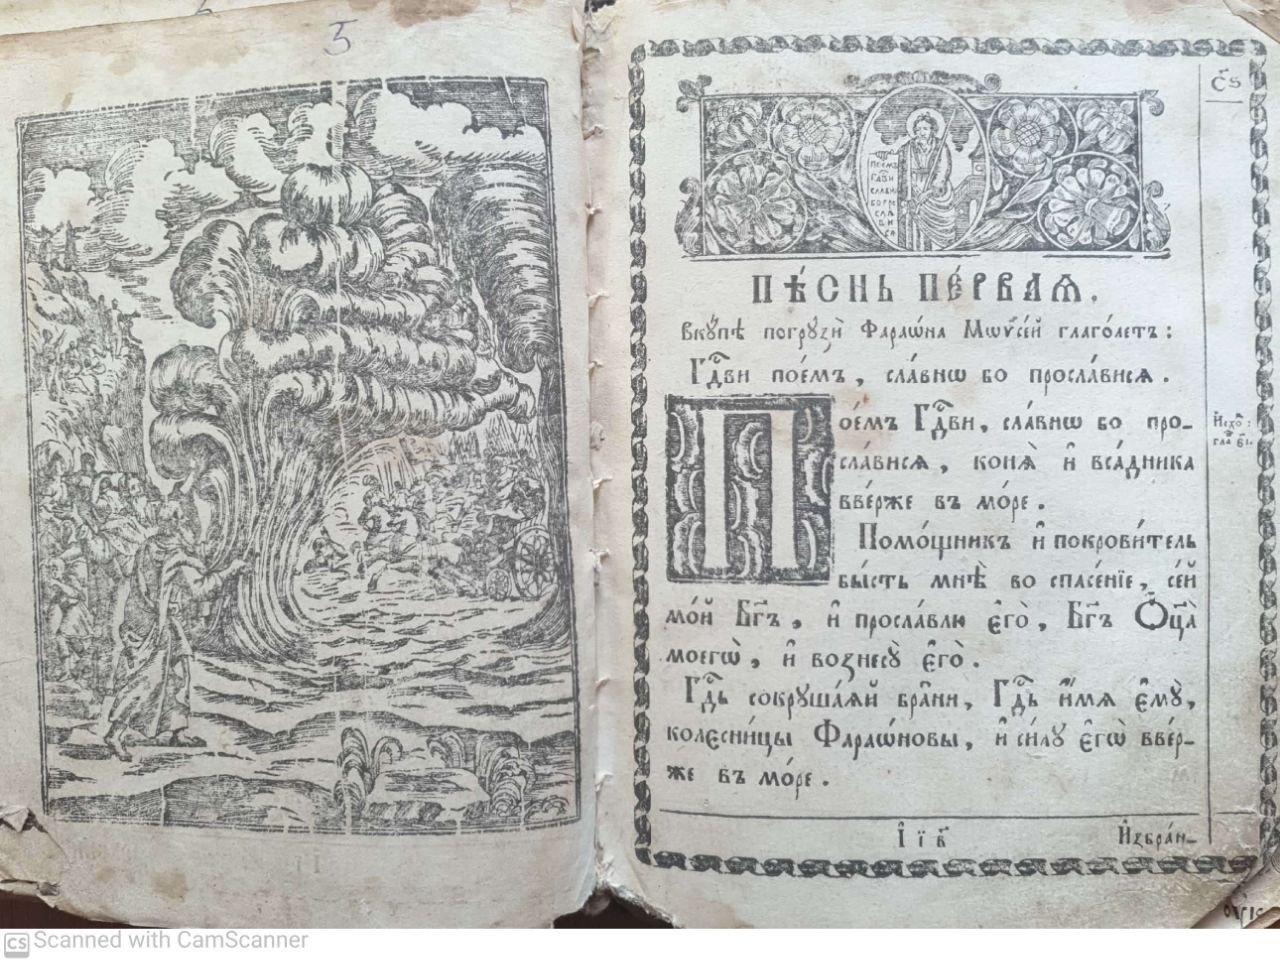 5
С҃ѕ
поемъ
Гдⷭ҇ви
Пѣ́снь пе́рваѧ.
Вкꙋ́пѣ погрꙋзѝ Фараѡ́на Мѡѷсе́й глаго́летъ:
Гдⷭ҇ви пое́мъ, сла́внѡ бо просла́висѧ.
Пое́мъ Гдⷭ҇ви, сла́внѡ бо про-
сла́висѧ, конѧ̀ и҆ вса́дника
вве́рже въ мо́ре.
Помо́щникъ и҆ покрови́тель
бы́сть мнѣ̀ во спасе́нїе, се́й
мо́й Бг҃ъ, и҆ просла́влю є҆го̀, Бг҃ъ Ѻ҆ц҃а̀
моегѡ̀, и҆ вознесꙋ̀ є҆го̀.
Гдⷭ҇ь сокрꙋша́ѧй бра̑ни, Гдⷭ҇ь и҆́мѧ є҆мꙋ̀,
колєсни́цы Фараѡ́новы, и҆ си́лꙋ є҆гѡ̀ вве́р-
же въ мо́ре.
И҆схо́:
гла̀ є҃і.
І҆ ї в҃
И҆збра́н-
CS Scanned with CamScanner